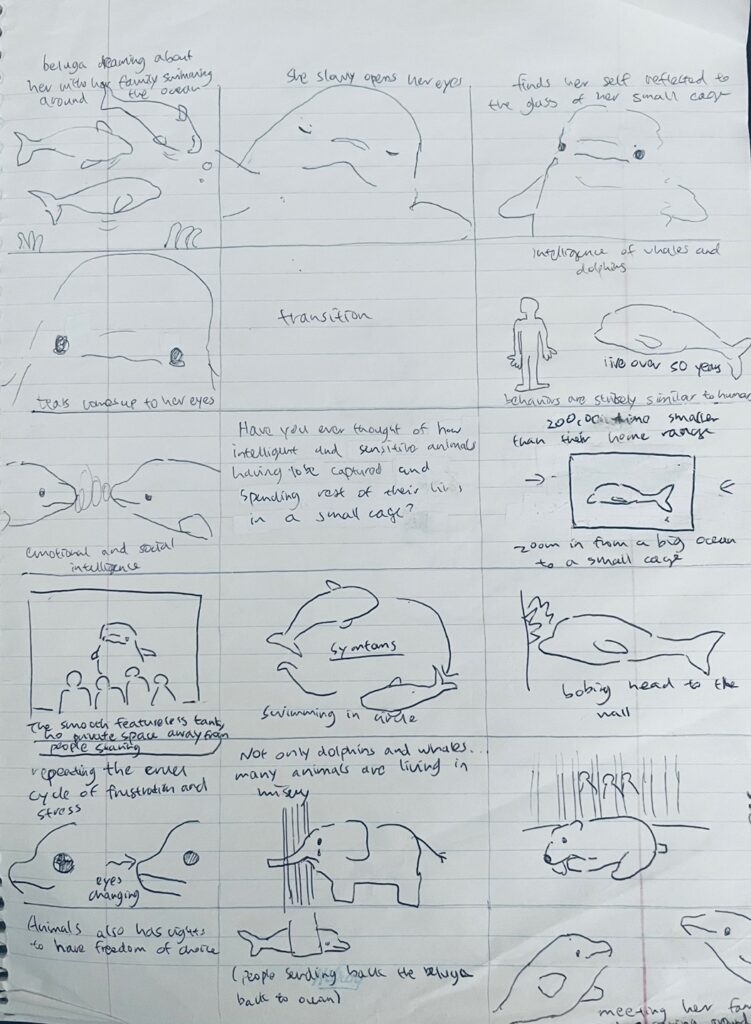 beluga dreaming about
her with her family swimming
around the ocean
She slowy opens her eyes
finds her self reflected to
the glass of her small cage
tears comes up to her eyes
transition
intelligence of whales and
dolphins
live over 50 years
behaviors are similar to human
emotional and social
intelligence
Have you ever thought of how
intelligent and sensitive animals
having to be captured and
spending rest of their lives
in a small cage?
200,000 time smaller
than their home range
zoom in from a big ocean
to a small cage
The smooth featureless tank,
no private space away from
people staring
Symtoms
Swimming in circle
bobing head to the
wall
repeating the cruel
cycle of frustration and
stress
eyes
changing
Not only dolphins and whales...
many animals are living in
misery
Animals also has rights
to have freedom of choice
(people sending back the beluga
back to ocean)
meeting her